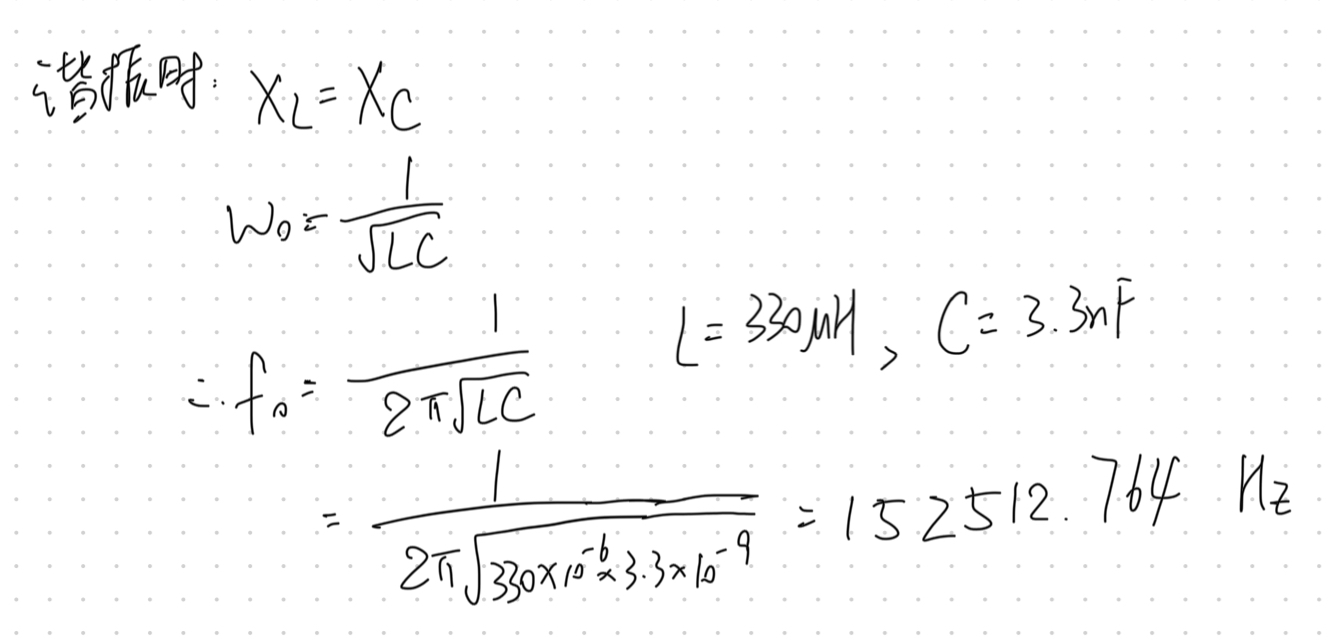 谐振时: X_L = X_C
W_0 = 1/√(LC)
∴ f_0 = 1/(2π√(LC)) L = 330μH, C = 3.3nF
= 1/(2π√(330×10^-6 × 3.3×10^-9)) = 152512.764 Hz